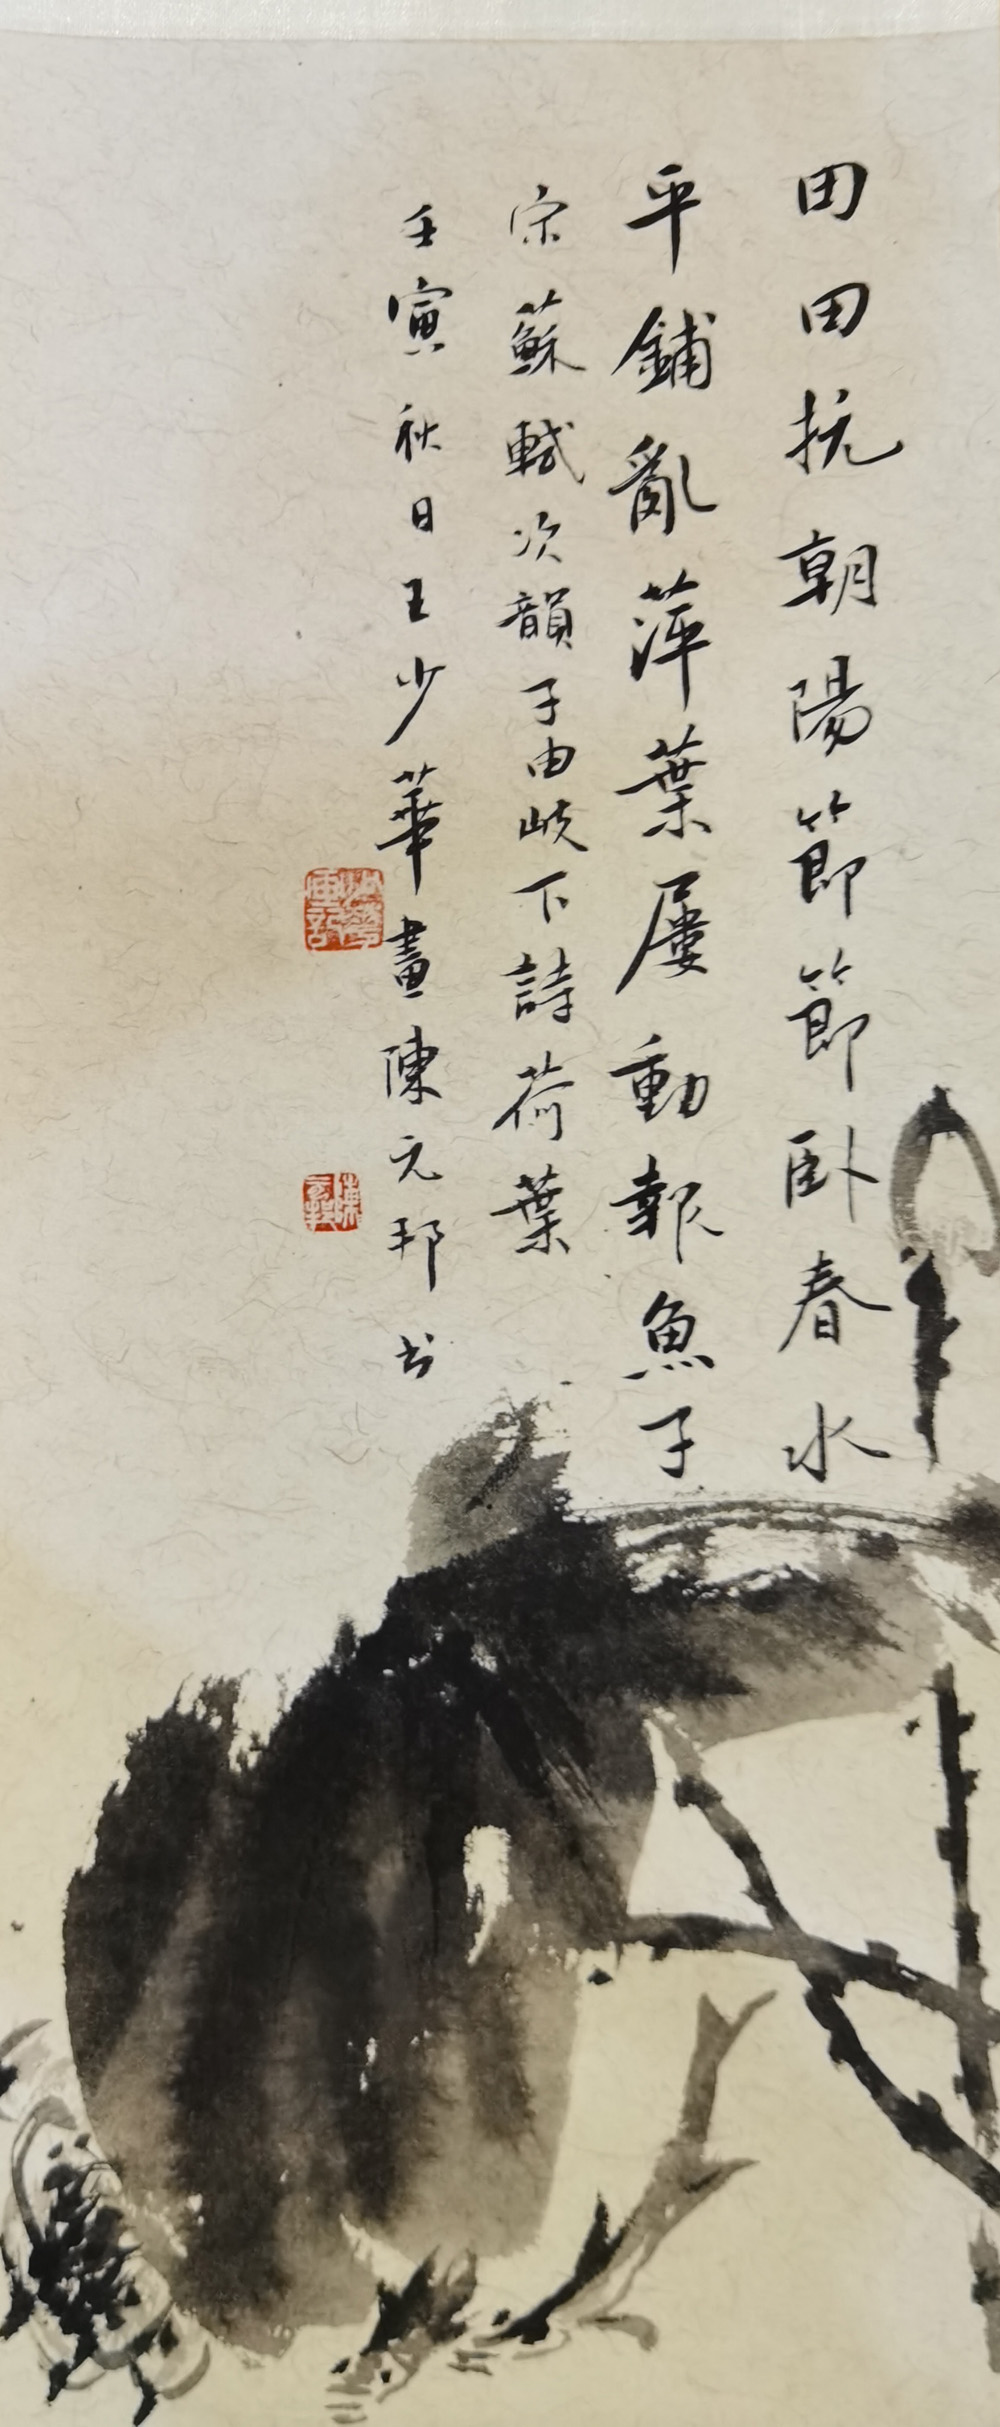 田田抗朝陽節節卧春水
平鋪亂萍葉屢動報魚子
宋蘇軾次韻子由岐下詩荷葉
壬寅秋日王少華畫陳元邦书